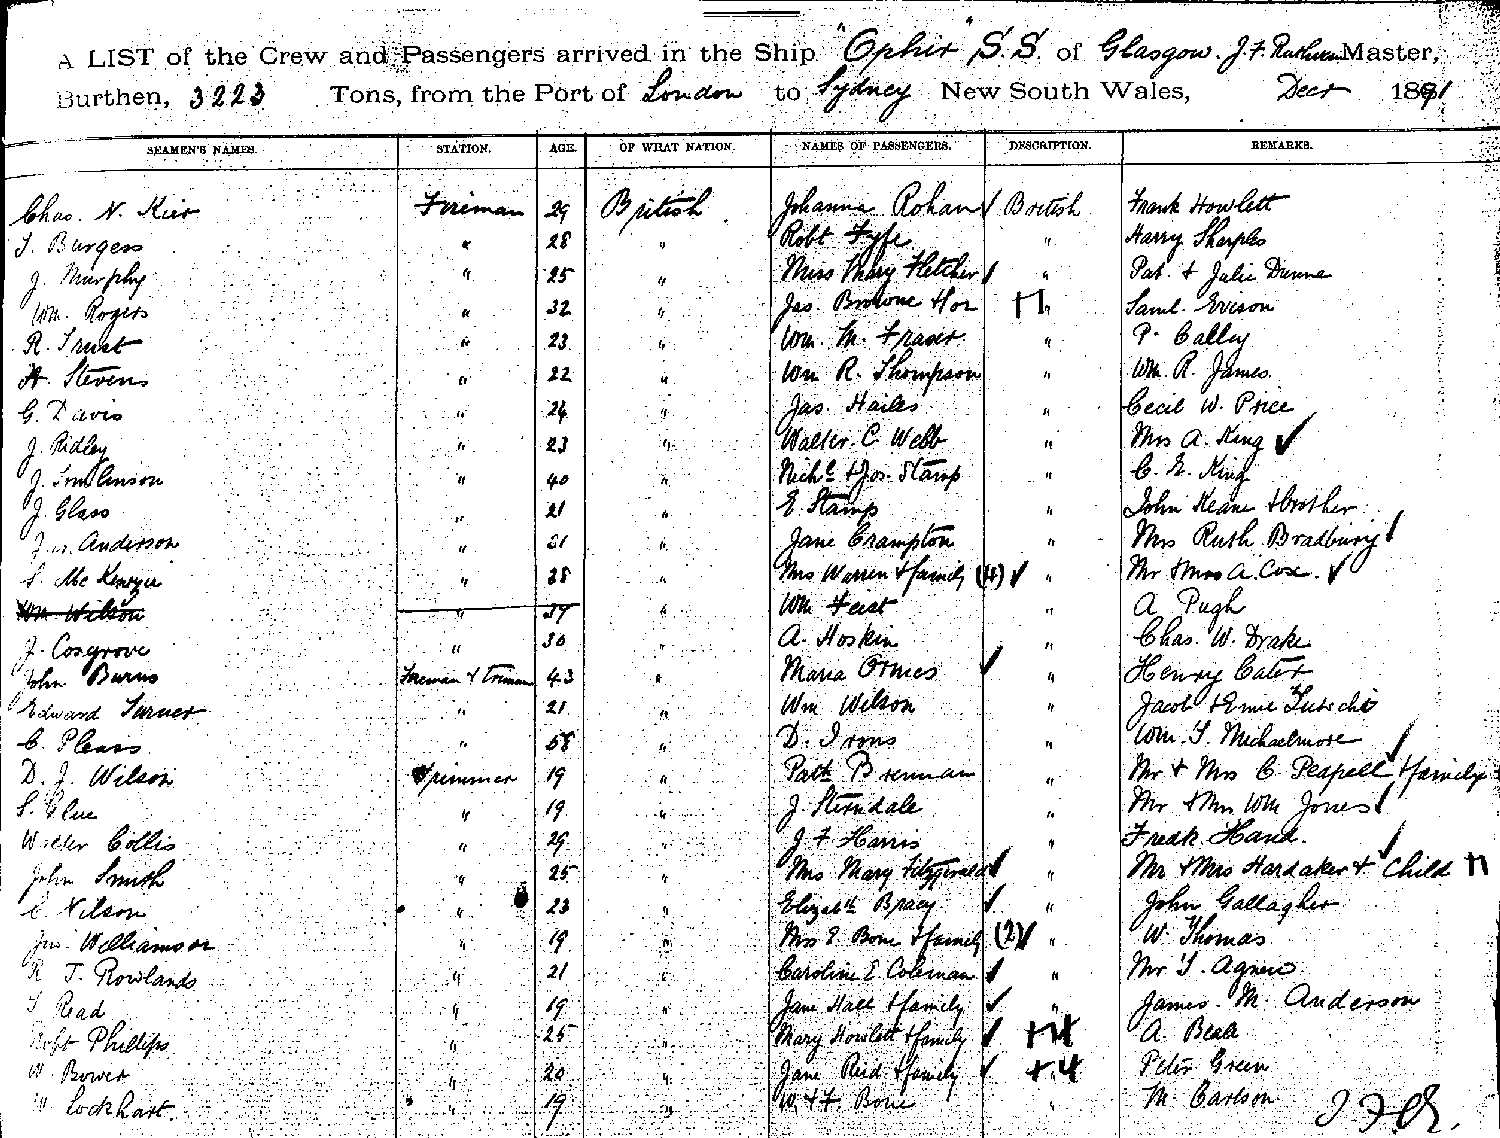 A LIST of the Crew and Passengers arrived in the Ship "Ophir" S.S. of Glasgow. J. F. Ruthven Master,
Burthen, 3223 Tons, from the Port of London to Sydney New South Wales, Decr 1891
SEAMEN'S NAMES. STATION. AGE. OF WHAT NATION. NAMES OF PASSENGERS. DESCRIPTION. REMARKS.
Chas. N. Keir Fireman 29 British Johanna Rohan ✓ British Frank Howlett
T. Burgess " 28 " Robt Fyfe " Harry Sharples
J. Murphy " 25 " Miss Mary Fletcher ✓ " Pat. + Julia Dunne
Wm. Rogers " 32 " Jas. Browne Hor " Saml. Eveson
R. Trust " 23 " Wm. M. Fraser " P. Calley
H. Stevens " 22 " Wm R. Thompson " Wm. R. James.
G. Davis " 24 " Jas. Hailes " Cecil W. Price
J. Ridley " 23 " Walter. C. Webb " Mrs A. King ✓
J. Tomlinson " 40 " Nichs + Jos. Stamp " C. E. King
J. Glass " 21 " E. Stamp " John Keane + brother
Jas. Anderson " 31 " Jane Crampton " Mrs Ruth Bradbury ✓
S. McKenzie " 28 " Mrs Warren + family (4) ✓ " Mr + Mrs A. Cox. ✓
Wm Wilson " 37 " Wm Feist " A Pugh
J. Cosgrove " 30 " A. Hoskin " Chas. W. Drake
John Burns Fireman & Trimmer 43 " Maria Ormes ✓ " Henry Cater
Edward Turner " 21 " Wm Wilson " Jacob + Ernie
C. Pleass " 58 " D. Irons " Wm. T. Michaelmore
D. J. Wilson Trimmer 19 " Patk Brennan " Mr + Mrs C. Pespell ✓ + family
S. Glue " 19 " J. Sterndale " Mr + Mrs Wm Jones ✓
Walter Collis " 29 " J. F. Harris " Fredk Hand.
John Smith " 25 " Mrs Mary Fitzgerald ✓ " Mr + Mrs Hardaker + ✓ Child
C. Nilson " 23 " Elizabth Bracy ✓ " John Gallagher
Jas. Williamson " 19 " Mrs E. Bone + family (2) ✓ " W. Thomas
R T. Rowlands " 21 " Caroline E. Coleman ✓ " Mr. T. Agnew
T Read " 19 " Jane Hall + family ✓ " James. M. Anderson
Robt Phillips " 25 " Mary Howlett + family ✓ A. Beale
W. Bower " 20 " Jane Reid + family ✓ + 4 Peter Green
W Lockhart. " 19 " W. + F. Bone " M. Carlson